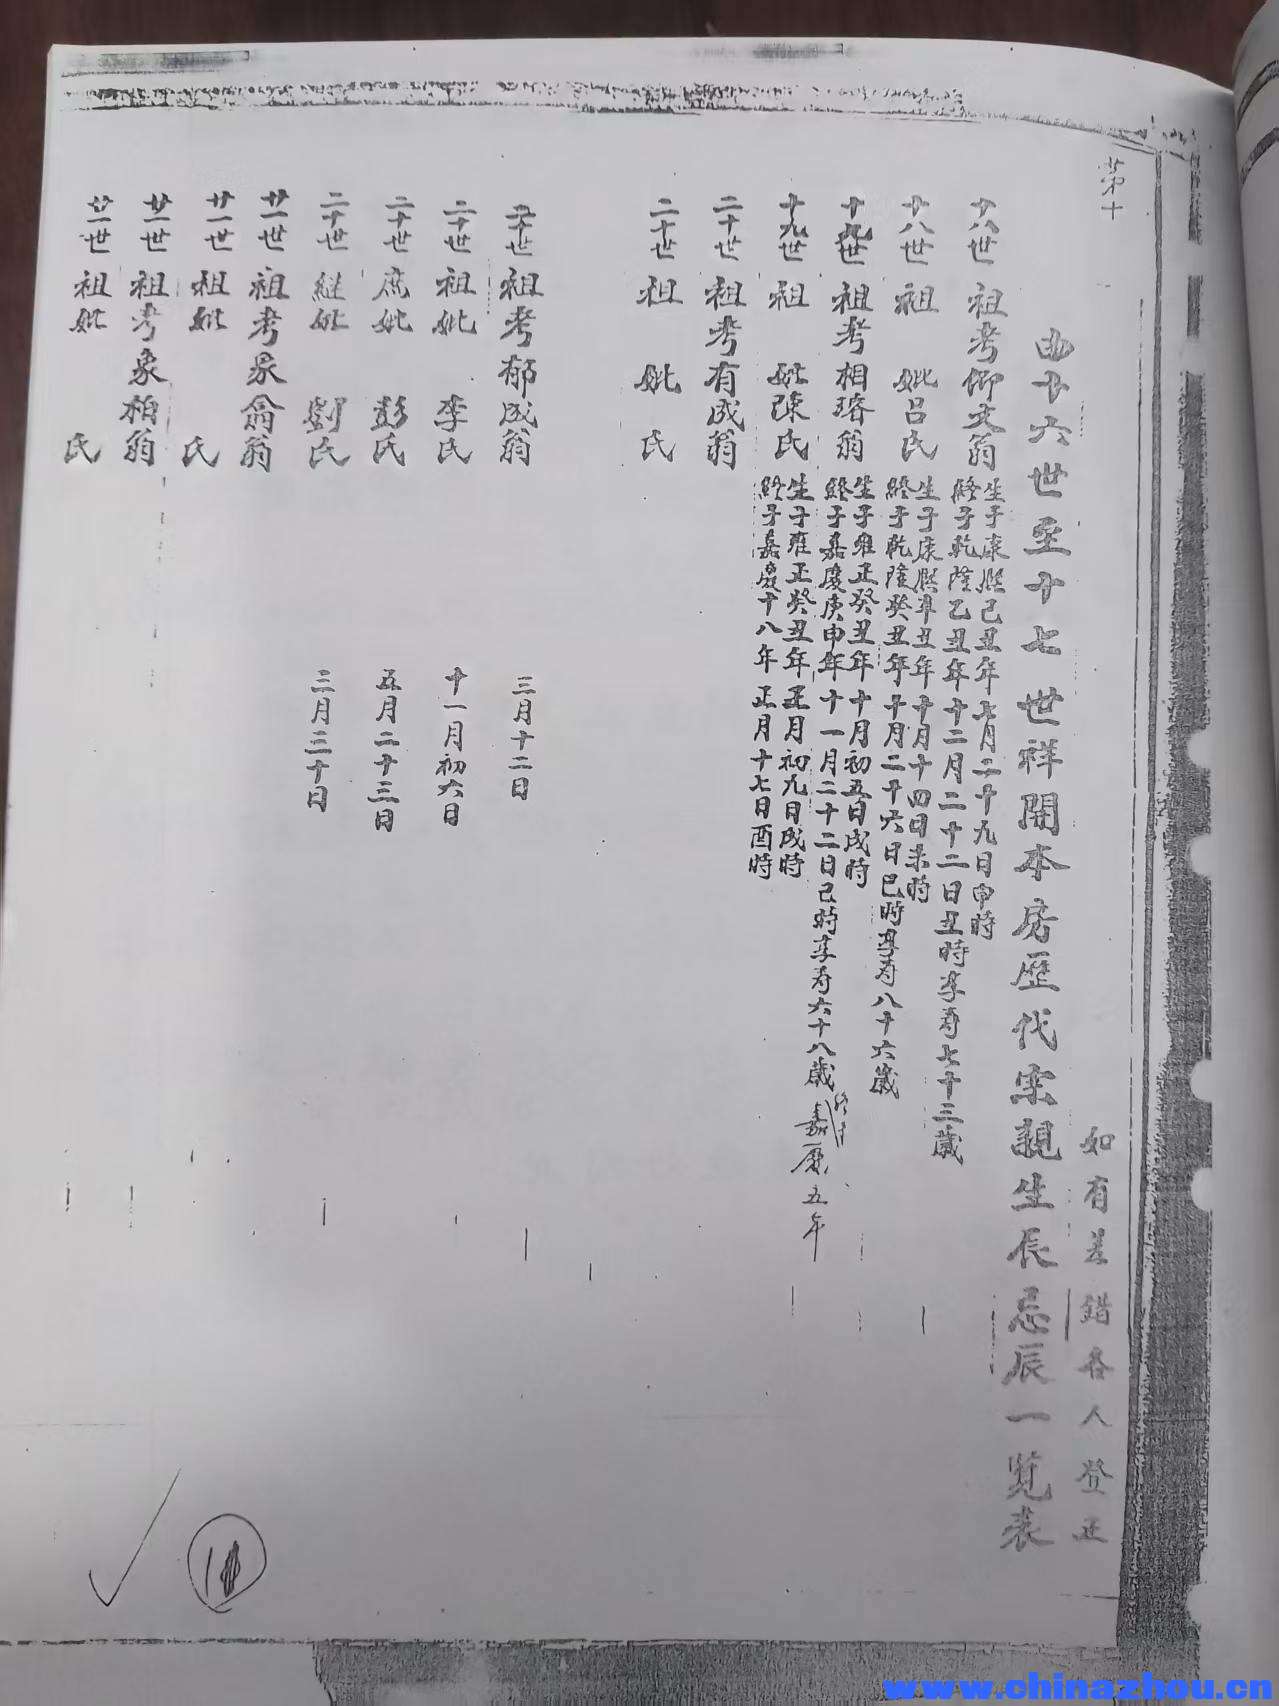 第十
如有差錯各人登正
由十六世至十七世祥開本房歷代宗親生辰忌辰一覽表
十八世祖考仰文翁
生于康熙己丑年七月二十九日申時
終于乾隆乙丑年十二月二十二日丑時享壽七十三歲
十八世祖妣呂氏
生于康熙辛丑年十月十四日未時
終于乾隆癸丑年十月二十六日巳時享寿八十六歲
十九世祖考相瑢翁
生于雍正癸丑年十月初五日戌時
終于嘉慶庚申年十一月二十二日己時享寿六十八歲
終于嘉慶五年
十九世祖妣陳氏
生于雍正癸丑年正月初九日戌時
終于嘉慶十八年正月十七日酉時
二十世祖考有成翁
二十世祖妣氏
二十世祖考郁成翁
三月十二日
二十世祖妣李氏
十一月初六日
二十世庶妣彭氏
五月二十三日
二十世継妣劉氏
三月三十日
廿一世祖考象龠翁
廿一世祖妣氏
廿一世祖考象柏翁
廿一世祖妣氏
www.chinazhou.cn